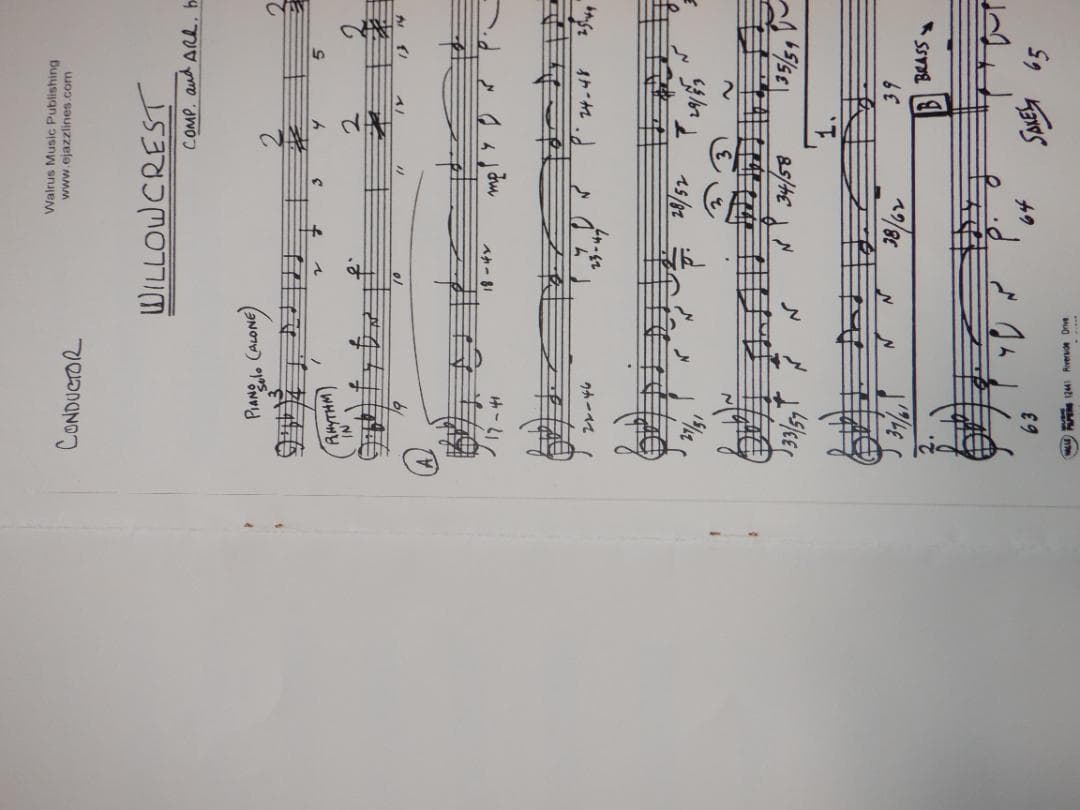 Walrus Music Publishing
www.ejazzlines.com
CONDUCTOR
WILLOWCREST
COMP. and ARR.
PIANO
SOLO (ALONE)
3
4
2
2
1 2 3 4 5
(RHYTHM
IN)
2
2
9 10 11 12 13 14
A
mp
17-41 18-42
22-46 23-47 24-48
27/51 28/52 29/53
3 3
33/57 34/58 35/59
1.
37/61 38/62 39
2.
B BRASS
63 64 SAXES 65
12441 Riverside Drive